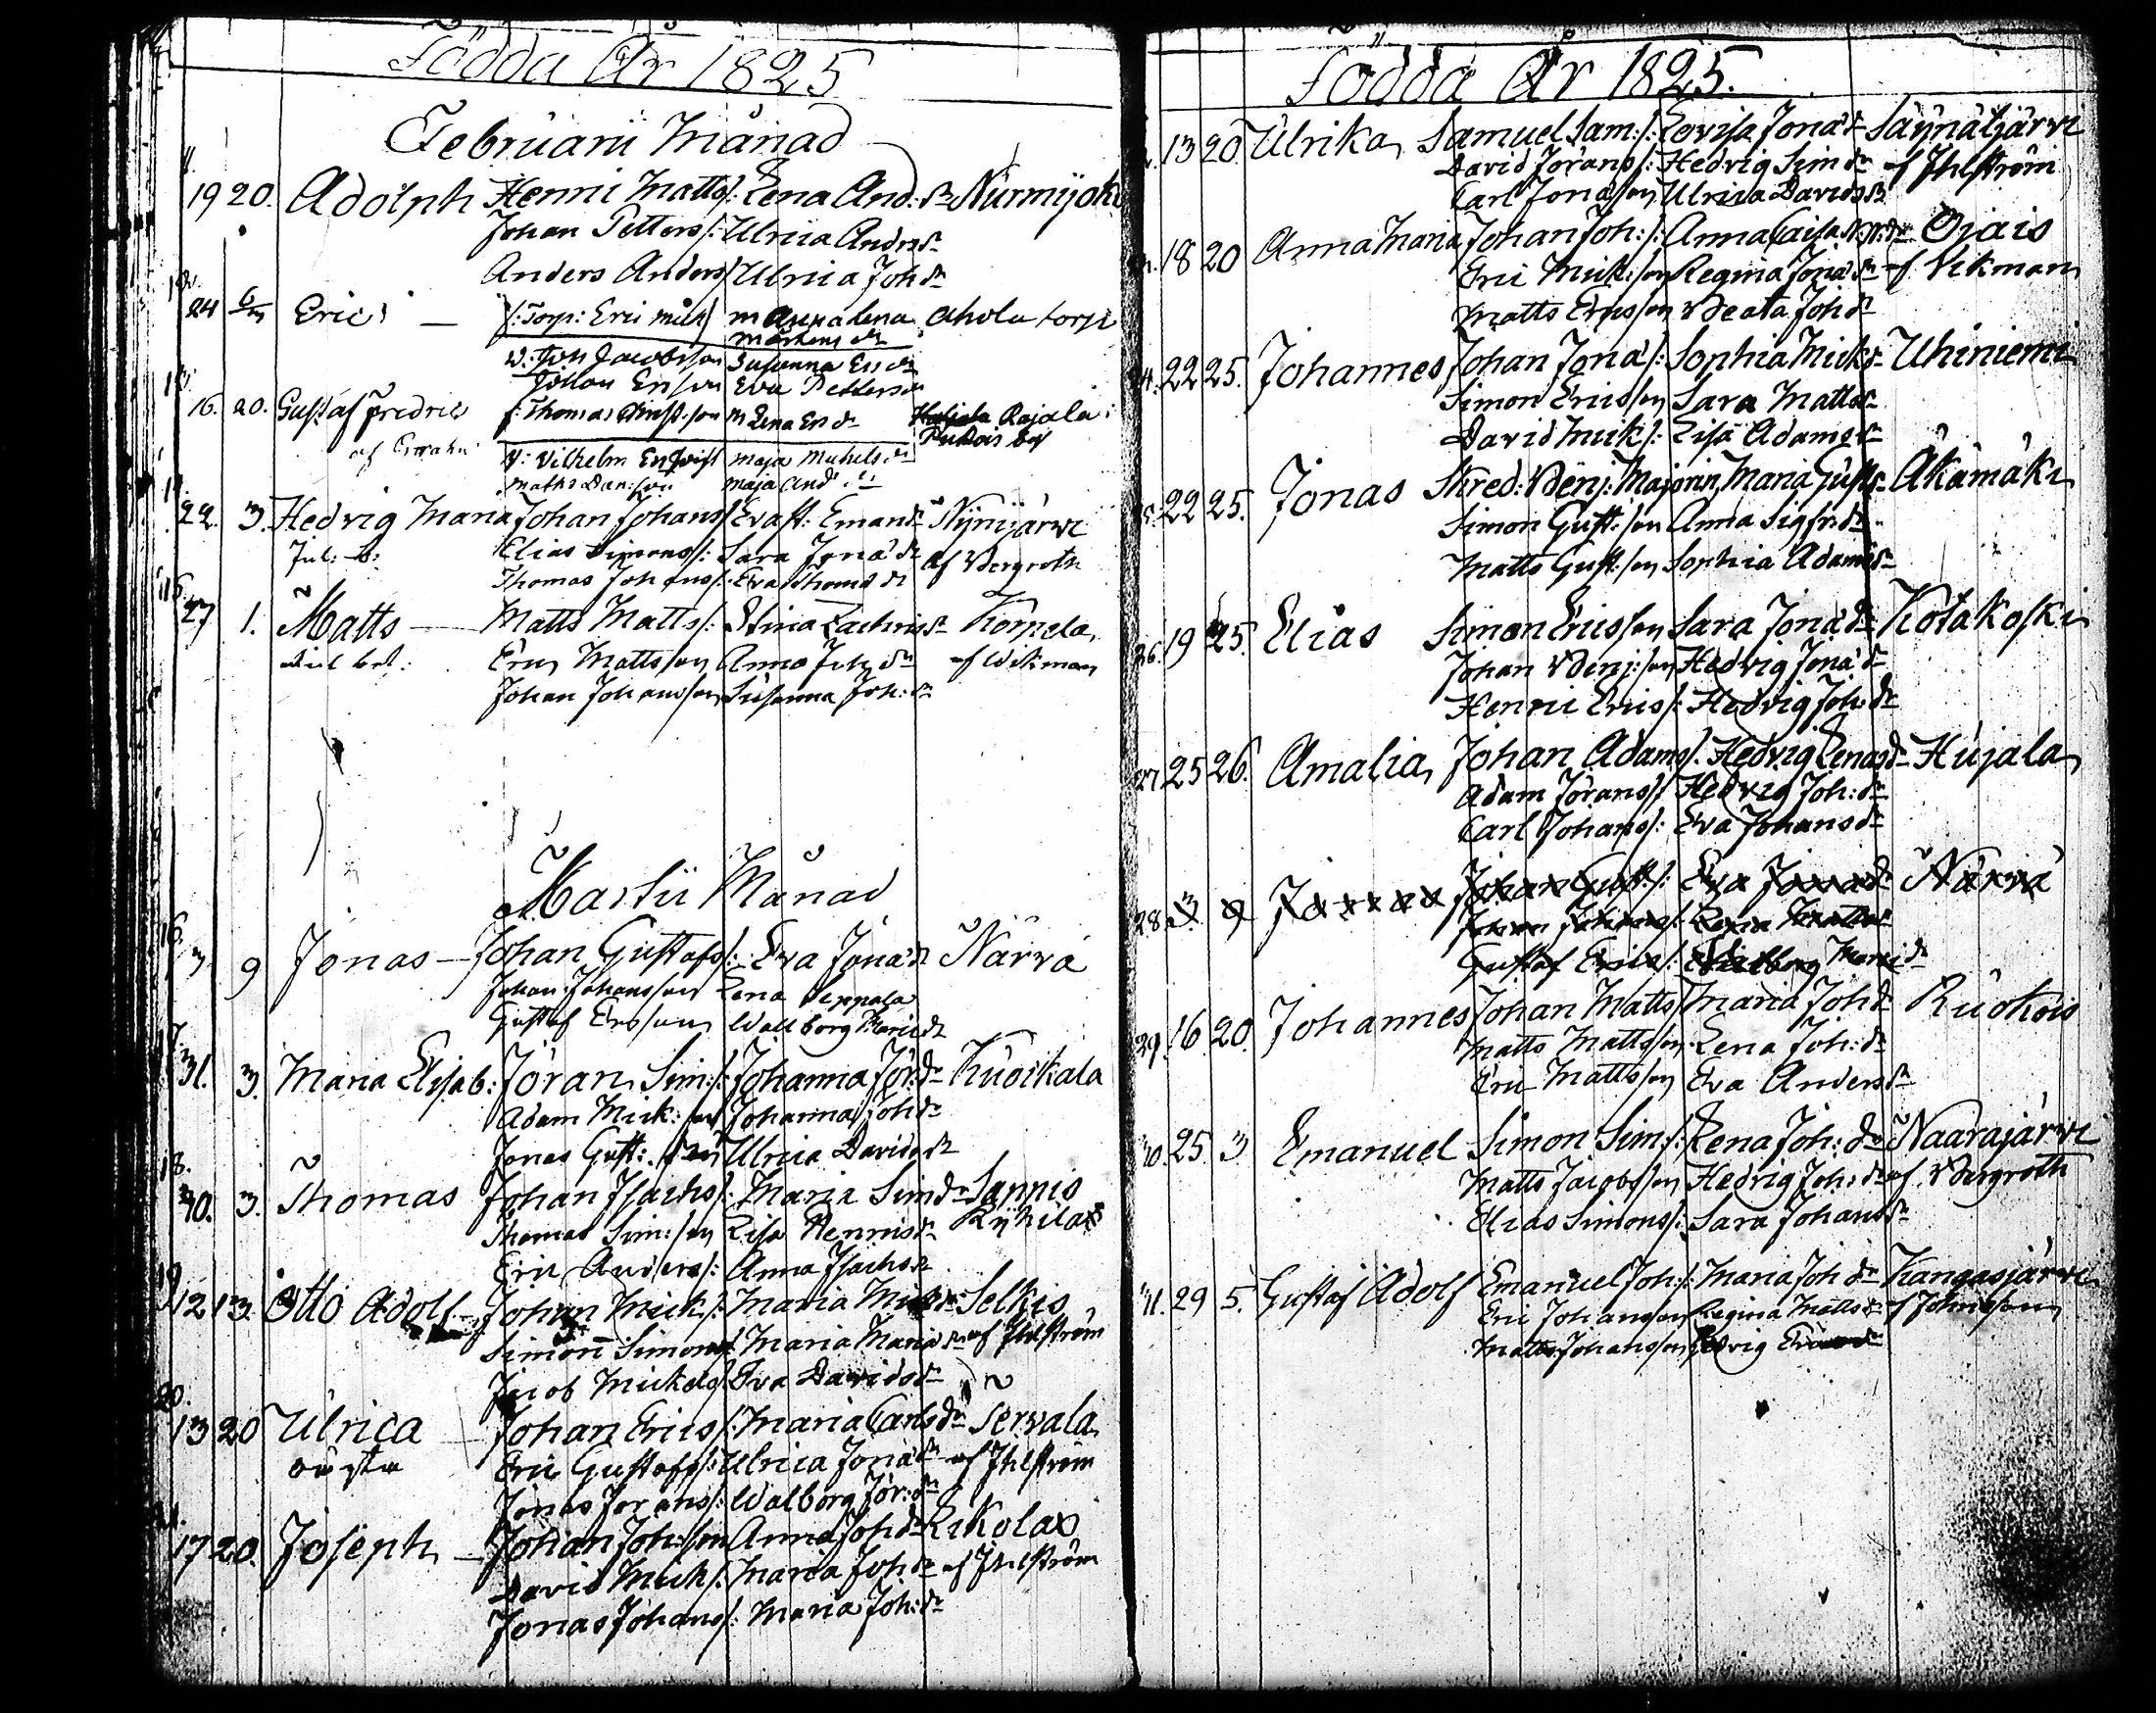 Födda År 1825
Februarii Månad
11
19 20. Adolph Henric Matts/: Lena And: dr Nurmijoki
Johan Petters/: Ulrica Andrs dr
Anders Anders/ Ulrica Joh dr
12.
24 Eric — /:Torp: Eric Mich/ m Magdalena Ahola torp
Mårtens dr
W: Joh Jacobsson Susanna Ers dr
Johan Ersson Eva Petters dr
13.
16. 20. Gustaf Fredric f: Thomas Christ:son m Lena Ers dr Rajala
af W: Vilhelm Enqvist Maja Michels dr
Matts Dan:son Maja And dr
14.
22. 3. Hedvig Maria Johan Johans/ Eva St: Eman dr Nymijärvi
Elias Simons/: Sara Jona dr af Bergroth
Thomas Johans/: Eva Thoms dr
15.
27 1. Matts — Matts Matts/: Stina Zachris dr Korpela
Eric Mattsson Anna Joh dr af Wikman
Johan Johansson Susanna Joh: dr
Martii Månad
16.
3 9 Jonas — Johan Gustafs/: Eva Jona dr Närvä
Johan Johansson Lena Seppälä
Gustaf Ersson Wallborg Marie dr
17.
31. 3. Maria Elisab: Jöran Sim:/: Johanna Jör: dr Kuoikala
Adam Mick:son Johanna Joh dr
Jonas Gust: son Ulrica Davids dr
18.
30. 3. Thomas Johan Isachs/: Maria Sim dr Sannis
Thomas Sim:son Lisa Henrics dr Ryhilax
Eric Anders/: Anna Isachs dr
19
12 13. Otto Adolf Johan Mick/: Maria Mick dr Selkis
Simon Simons/ Maria Maria dr af Ihlström
Jacob Mickels/ Eva Davids dr
20.
13 20 Ulrica Johan Erics/: Maria Carls dr Servala
Eric Gustafs/: Ulrica Jona dr af Ihlström
Jonas Jorans/: Walborg Jör: dr
21.
17 20. Joseph — Johan Joh:son Anna Joh dr Rikolax
David Mick/: Maria Joh dr af Ihlström
Jonas Johans/: Maria Joh: dr
Födda År 1825.
13 20 Ulrika Samuel Sam:/: Lovisa Jona dr Säynätjärvi
David Jörans/: Hedvig Sim dr af Ihlström
Carl Jonasson Ulrica Davids dr
18 20 Anna Maria Johan Joh:/: Anna Caisa N:N: dr Ojais
Eric Mick:son Regina Jona dr af Vikman
Matts Ersson Beata Joh dr
24. 22 25. Johannes Johan Jona/: Sophia Mick dr Uhiniemi
Simon Ericsson Sara Matts dr
David Mick/: Lisa Adams dr
25. 22 25. Jonas Skred: Benj: Majorin, Maria Gusts dr Äkämäki
Simon Gust:son Anna Sigfr dr
Matts Gust:son Sophia Adams dr
26. 19 25. Elias Simon Ericsson Sara Jona dr Kotakoski
Johan Benj:son Hedvig Jona dr
Henric Erics/: Hedvig Joh: dr
27 25 26. Amalia Johan Adams/: Hedvig Lenas dr Hujala
Adam Jörans/: Hedvig Joh: dr
Carl Johans/: Eva Johans dr
28 3. 9 Jonas Johan Gust/: Eva Jonas dr Närvä
Johan Johans/: Lena Matts dr
Gustaf Erics/: Wallborg Marie dr
29. 16. 20. Johannes Johan Matts/ Maria Joh dr Ruokois
Matts Mattsson Lena Joh: dr
Eric Mattsson Eva Anders dr
30. 25 3 Emanuel Simon Sim:/: Lena Joh: dr Naarajärvi
Matts Jacobsson Hedvig Joh: dr af Bergroth
Elias Simons/: Sara Johans dr
31. 29 5. Gustaf Adolf Emanuel Joh:/: Maria Joh dr Kangasjärvi
Eric Johansson Regina Matts dr af Johnsson
Matts Johansson Hedvig